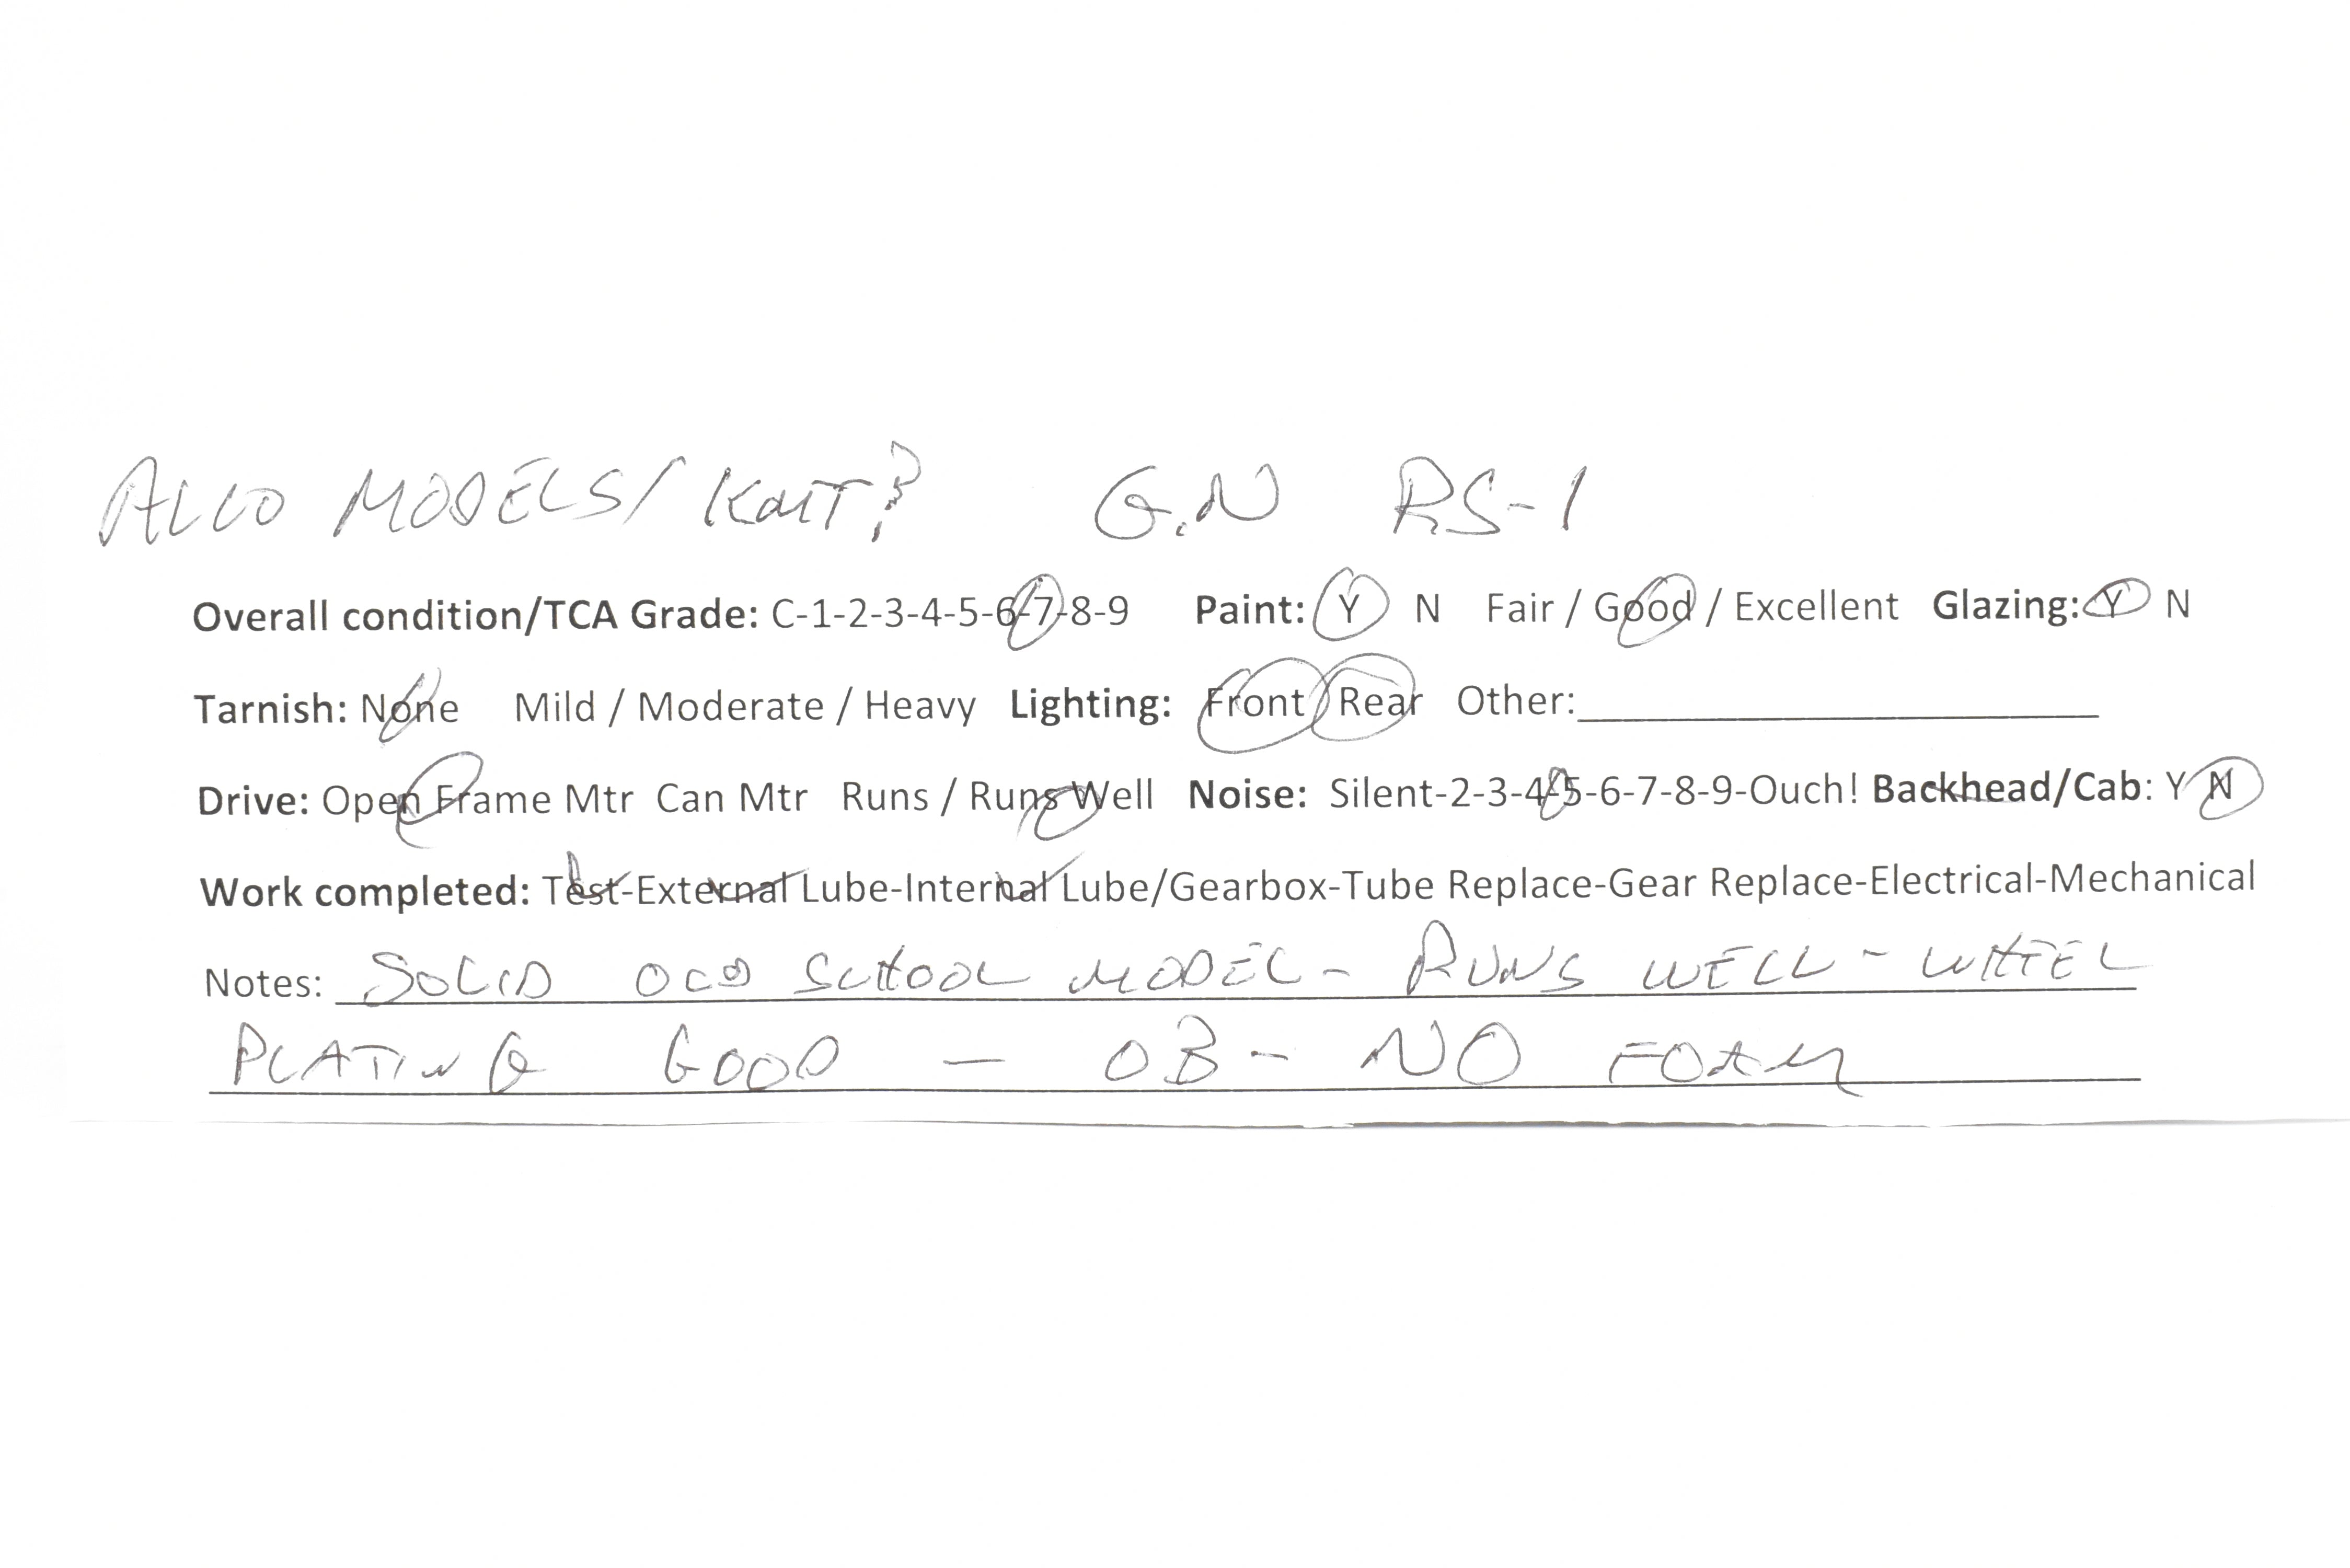 ALCO MODELS/ KMT? G.N RS-1
Overall condition/TCA Grade: C-1-2-3-4-5-6-7-8-9 Paint: Y N Fair / Good / Excellent Glazing: Y N
Tarnish: None Mild / Moderate / Heavy Lighting: Front / Rear Other:
Drive: Open Frame Mtr Can Mtr Runs / Runs Well Noise: Silent-2-3-4-5-6-7-8-9-Ouch! Backhead/Cab: Y N
Work completed: Test-External Lube-Internal Lube/Gearbox-Tube Replace-Gear Replace-Electrical-Mechanical
Notes: SOLID OLD SCHOOL MODEL - RUNS WELL - WHEEL
PLATING GOOD - OB - NO FOAM